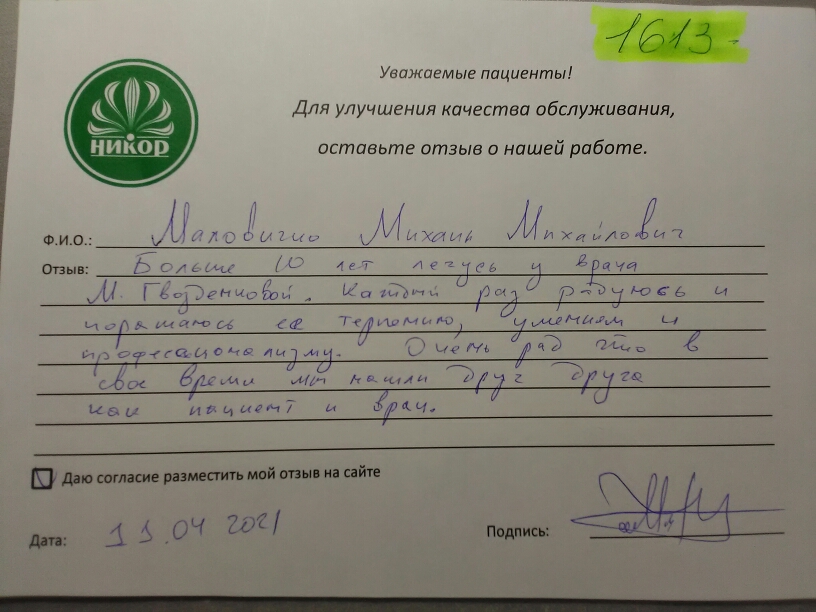 1613-
Уважаемые пациенты!
Для улучшения качества обслуживания,
оставьте отзыв о нашей работе.
НИКОР
Ф.И.О.: Маловичко Михаил Михайлович
Отзыв: Больше 10 лет лечусь у врача
М. Гвозденковой. Каждый раз радуюсь и
поражаюсь ее терпению, умениям и
професационализму. Очень рад что в
свое время мы нашли друг друга
как пациент и врач.
Даю согласие разместить мой отзыв на сайте
Дата: 11.04 2021
Подпись: